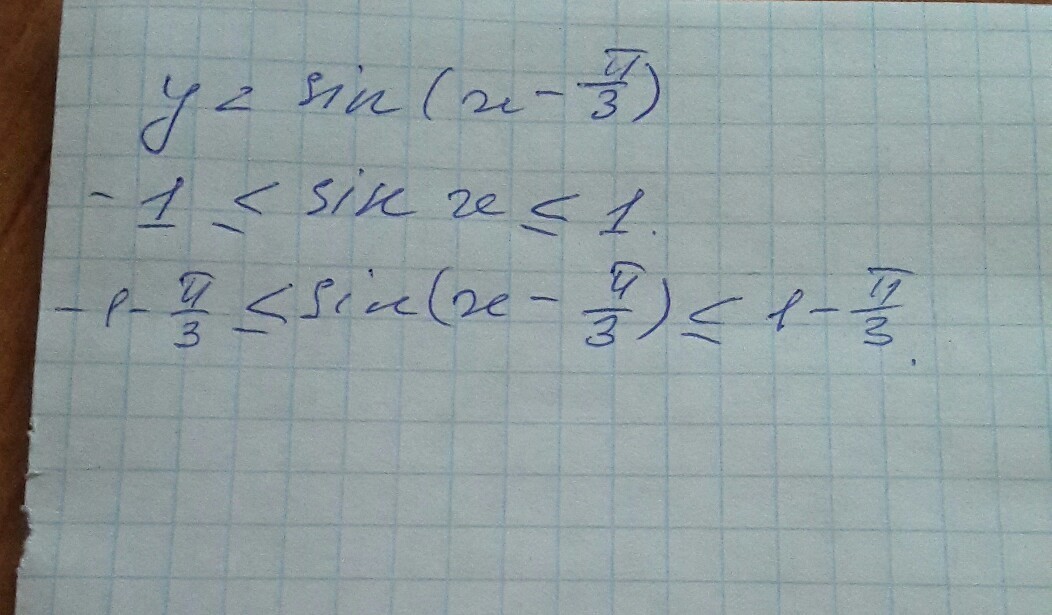 y = sin(x - π/3)
-1 ≤ sin x ≤ 1.
-1 - π/3 ≤ sin(x - π/3) ≤ 1 - π/3.